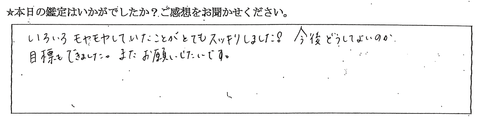 ★本日の鑑定はいかがでしたか？ご感想をお聞かせください。
いろいろ モヤモヤしていたことがとてもスッキリしました！ 今後どうしてよいのか
目標もできました。またお願いしたいです。